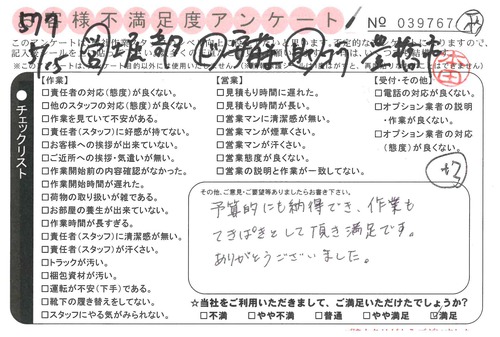 お客様不満足度アンケート
№ 039767
5/15
豊橋市
チェックリスト
【作業】
□責任者の対応(態度)が良くない。
□他のスタッフの対応(態度)が良くない。
□作業を見ていて不安がある。
□責任者(スタッフ)に好感が持てない。
□お客様への挨拶が出来ていない。
□ご近所への挨拶・気遣いが無い。
□作業開始前の内容確認がなかった。
□作業開始時間が遅れた。
□荷物の取り扱いが雑である。
□お部屋の養生が出来ていない。
□作業時間が長すぎる。
□責任者(スタッフ)に清潔感が無い。
□責任者(スタッフ)が汗くさい。
□トラックが汚い。
□梱包資材が汚い。
□運転が不安(下手)である。
□靴下の履き替えをしてない。
□スタッフにやる気がみられない。
【営業】
□見積もり時間に遅れた。
□見積もり時間が長い。
□営業マンに清潔感が無い。
□営業マンが煙草くさい。
□営業マンが汗くさい。
□営業態度が良くない。
□営業の説明と作業が一致してない。
【受付・その他】
□電話の対応が良くない。
□オプション業者の説明・作業が良くない。
□オプション業者の対応(態度)が良くない。
その他、ご意見・ご要望等ありましたらお書き下さい。
予算的にも納得でき、作業も
てきぱきとして頂き満足です。
ありがとうございました。
☆当社をご利用いただきまして、ご満足いただけたでしょうか?
□不満 □やや不満 □普通 □やや満足 ☑満足